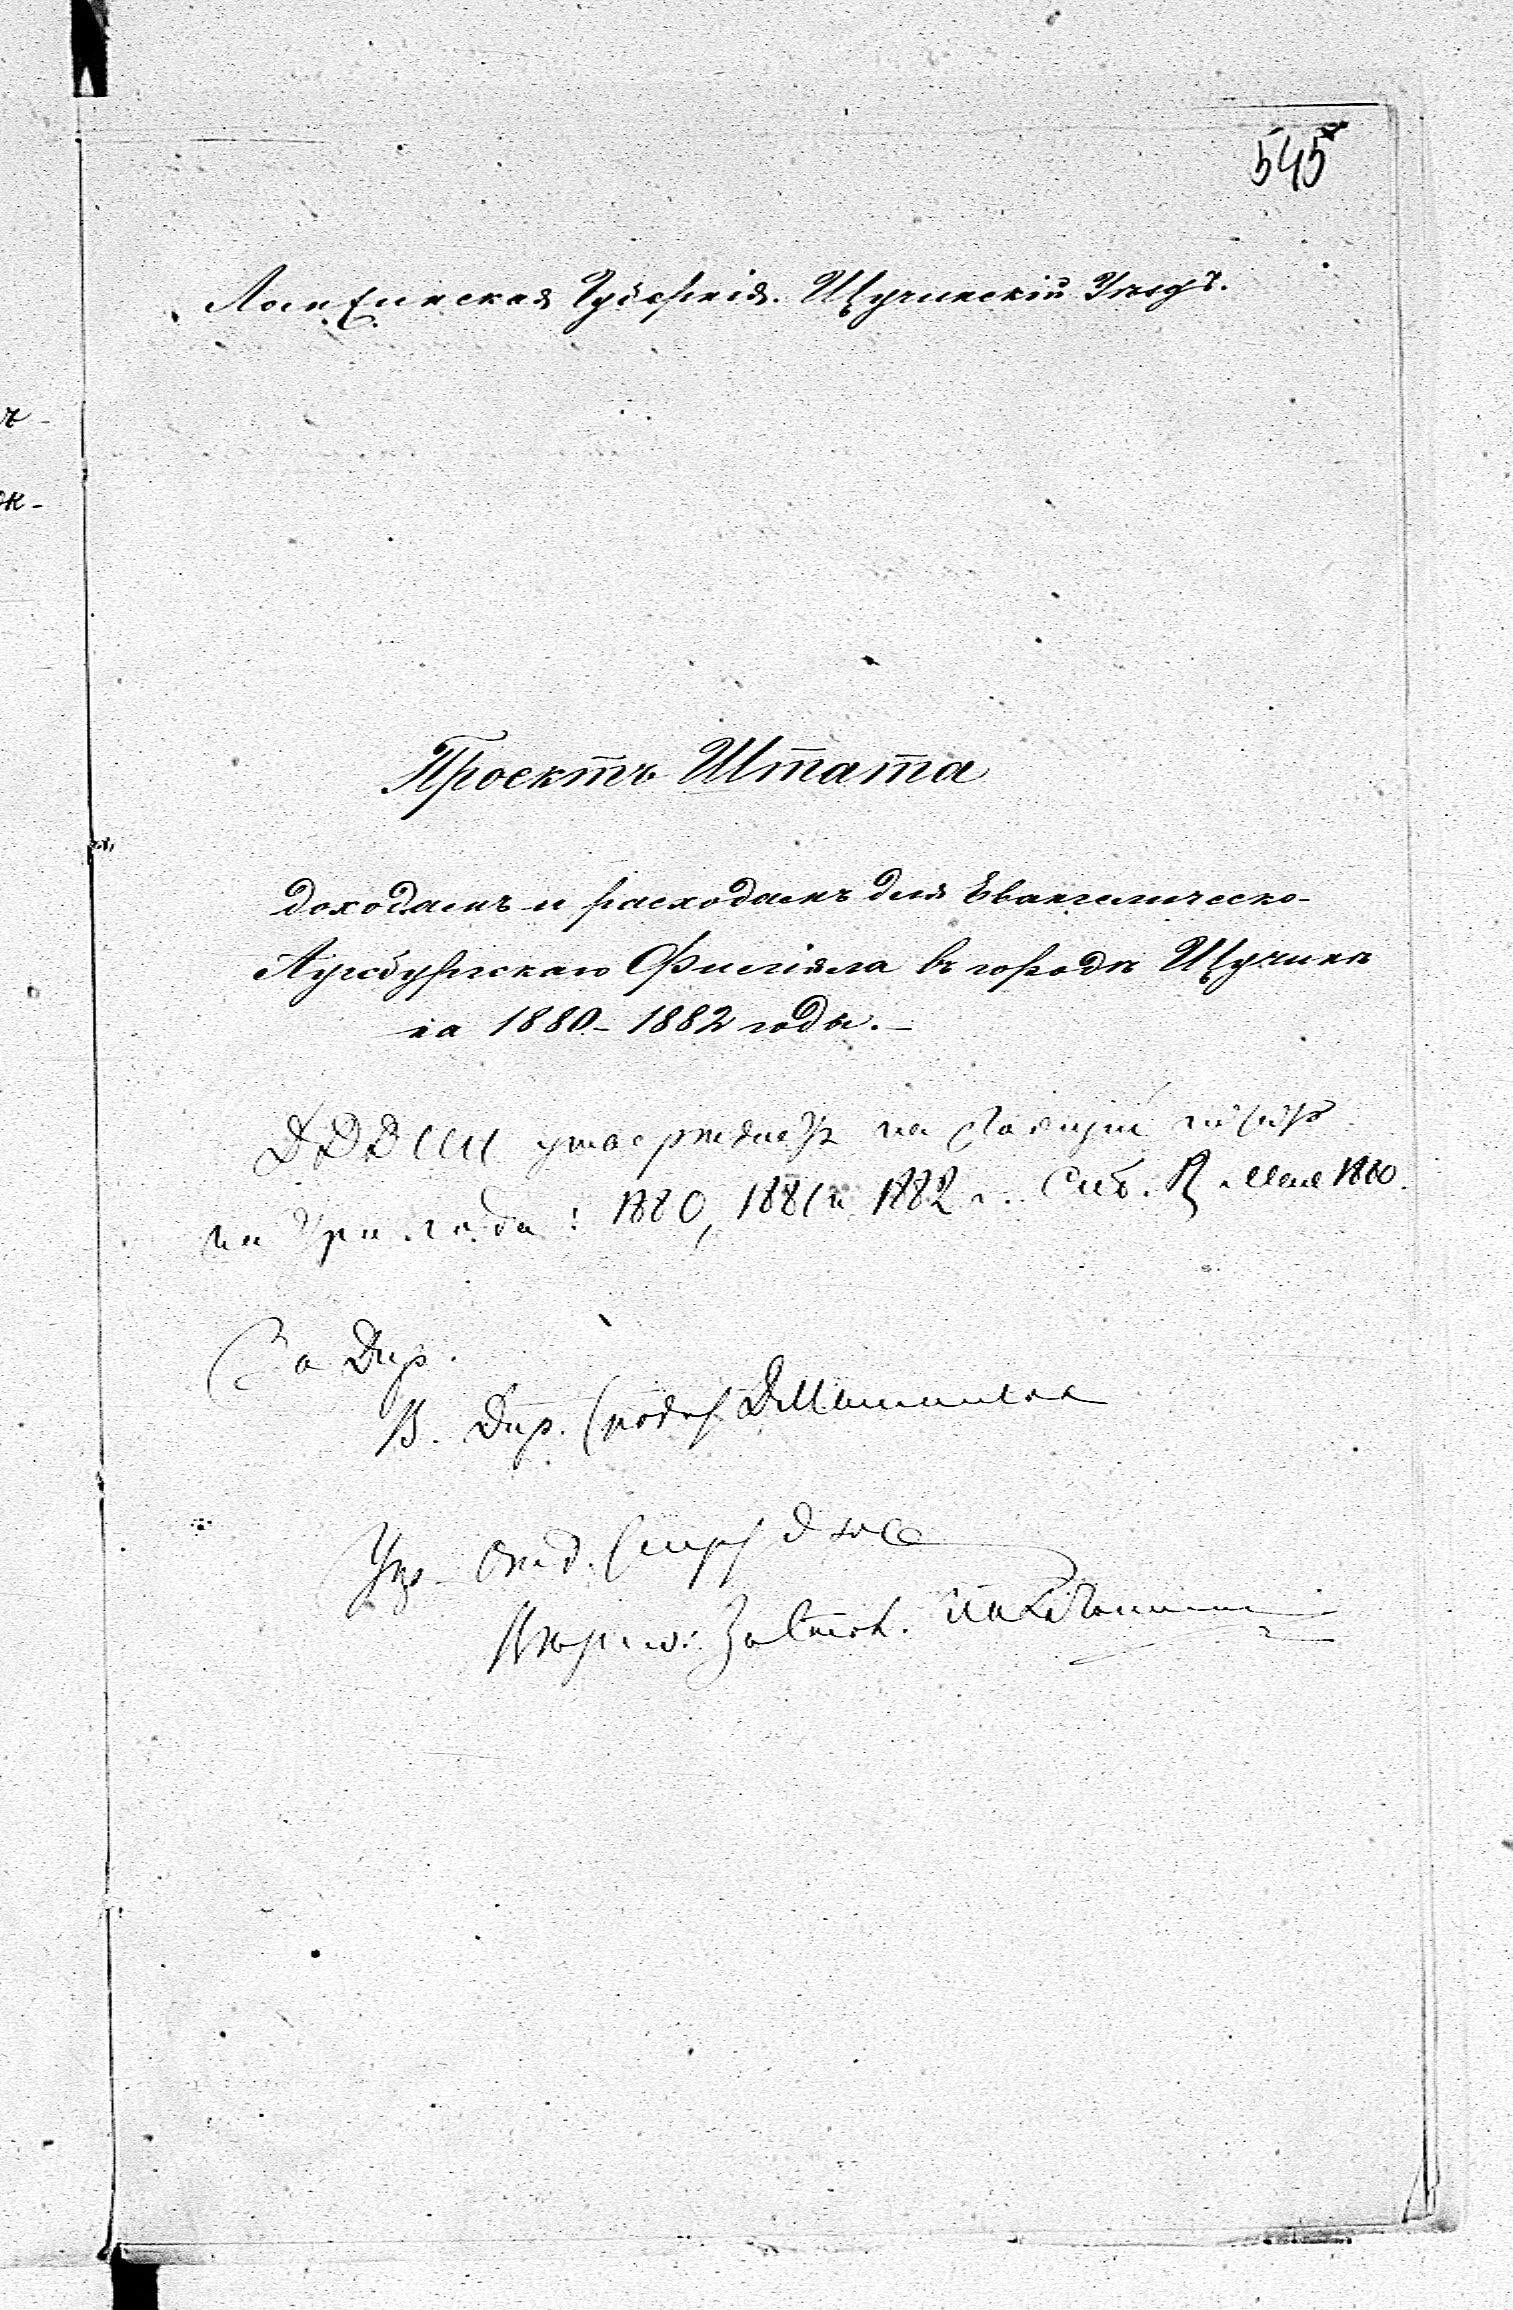 545
Ломжинская Губернія. Щучинскій Уѣздъ.
Проектъ Штата
доходамъ и расходамъ для Евангелическо-
Аугсбургскаго Филіяла въ городѣ Щучинѣ
на 1880-1882 годы.-
ДДДИИ утверждаетъ настоящій штатъ
на три года: 1880, 1881 и 1882 г. Спб. Мая 1880.
За Дир.
В. Дир. (подп)
Упр. Отд. (скрѣп)